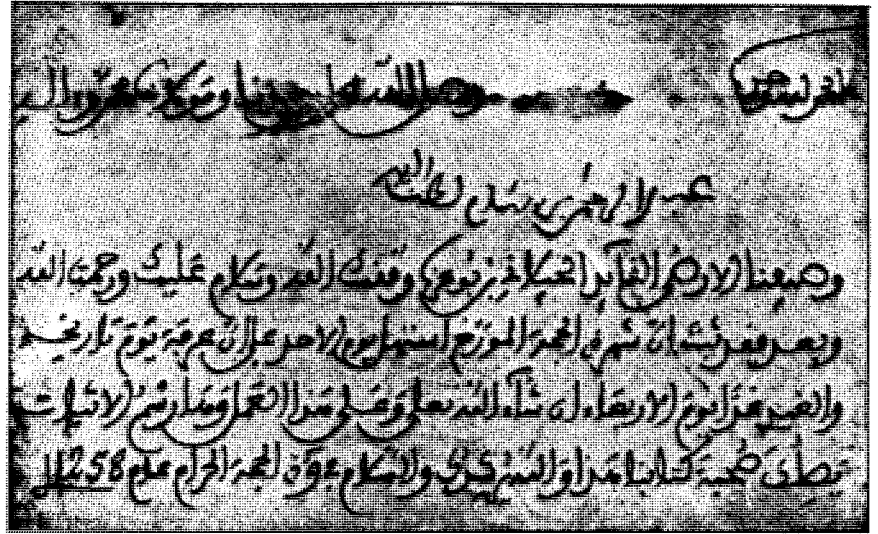 وصلى الله على سيدنا ومولانا محمد وآله
عبد الرحمن بن هشام لطف الله به
وصيفنا الأرضى القائد الجيلاني بن بوعزة وفقك الله وسلام عليك ورحمة الله
وبعد فقد ثبت أن شهر ذي الحجة المؤرخ استهل يوم الأحد على أن عرفة يوم تاريخه
والعيد غدا يوم الاربعاء ان شاء الله تعالى وعلى هذا العمل وها رسم الاثبات
يصلك صحبة كتابنا هذا والسلام في ذي الحجة الحرام عام 1258